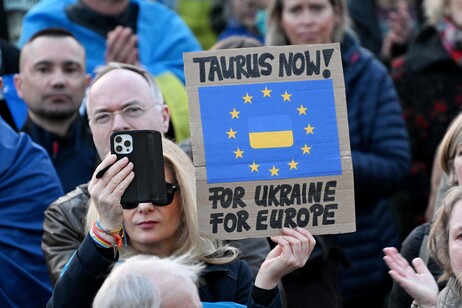 TAURUS NOW!
FOR UKRAINE
FOR EUROPE